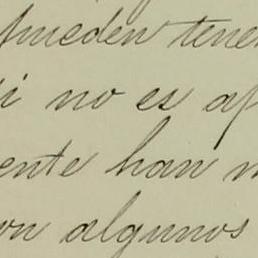 pueden tener
i no es af
ente han n
on algunos